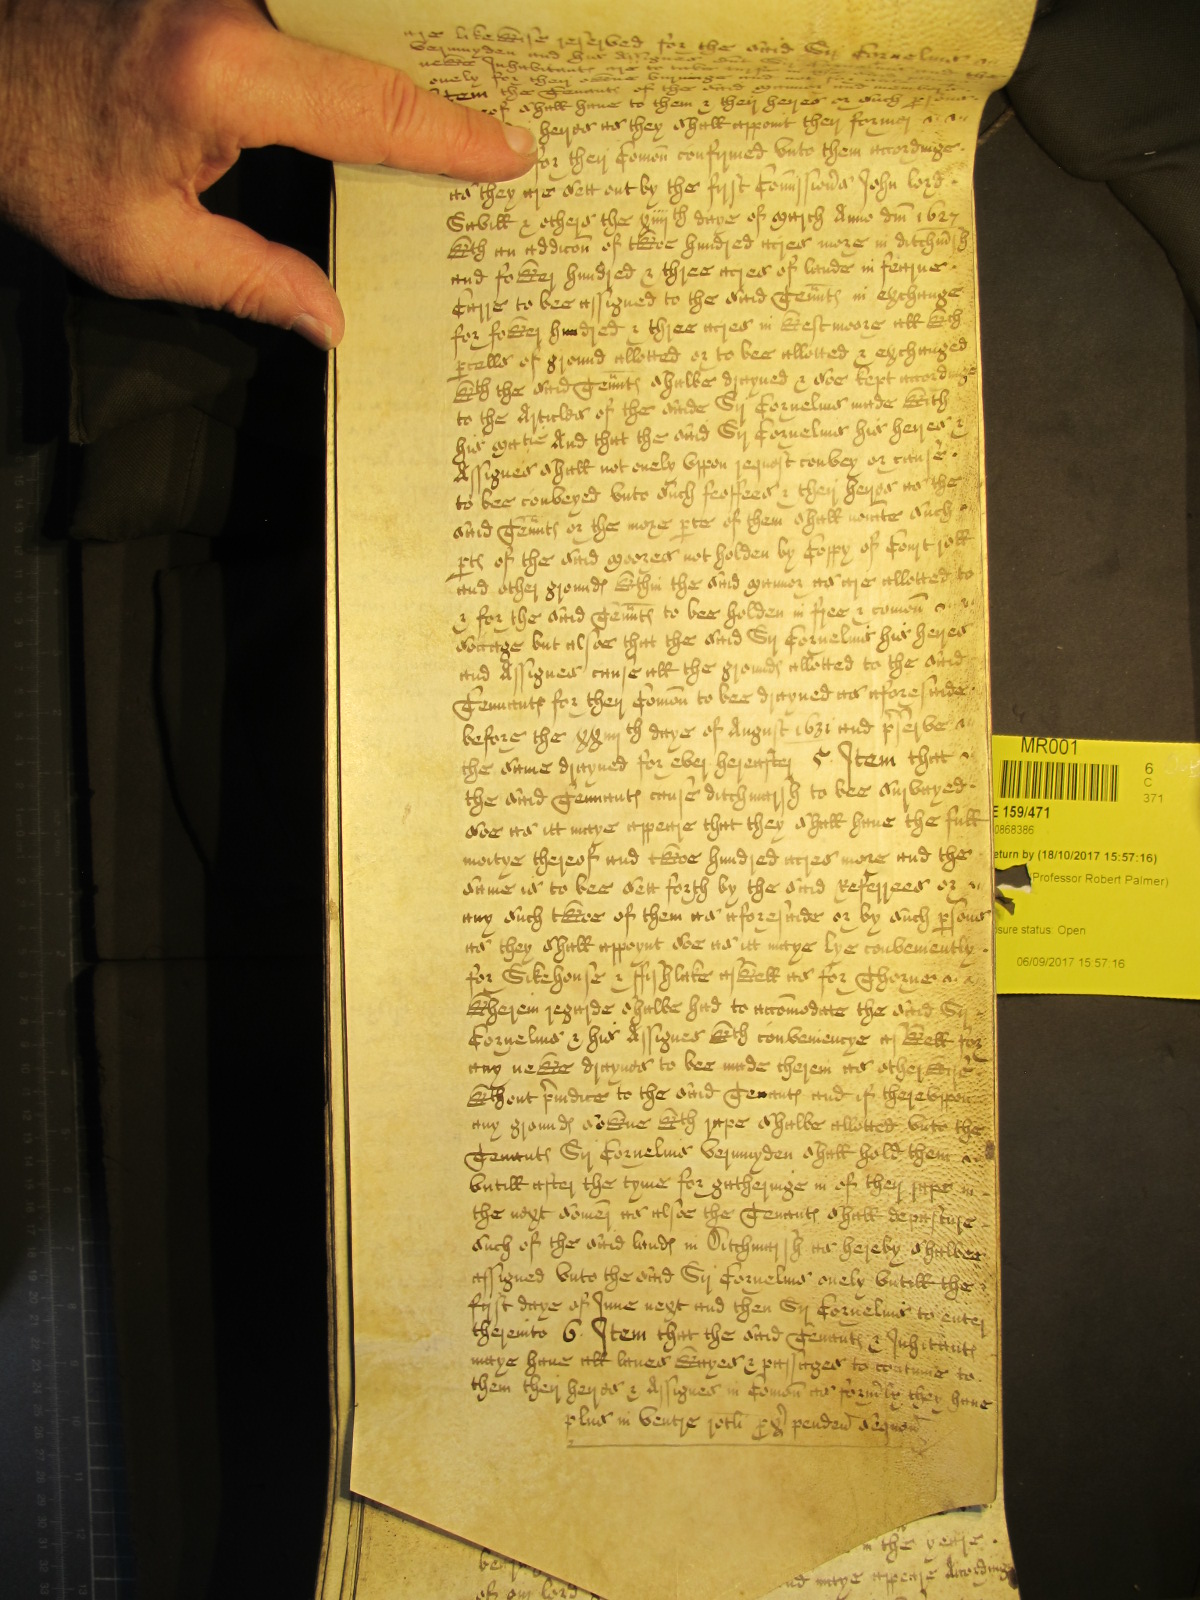 are likewise reserved for the said Sir Cornelius
Vermuyden and his Assignes
Inhabitants are to take
onely for their owne burninge and not
Item the Tenants of the said mannor and
shall have to them & their heires or such psons
heires as they shall appoint their former
for their Comon confirmed unto them accordinge
as they are sett out by the first Comissions John lord
Savill & others the xiiijth daye of march Anno dni 1627
wth an addicon of twoe hundred acres more in ditchmsh
and fower hundred & three acres of lande in fearne
Carre to bee assigned to the said Tennts in exchange
for fower hundred & three acres in westmoore all wch
pcells of ground allotted or to bee allotted & exchanged
wth the said Tennts shalbe drayned & soe kept accordinge
to the Articles of the saide Sir Cornelius made with
his matie And that the said Sir Cornelius his heires &
Assignes shall not onely uppon request convey or cause
to bee conveyed unto such feoffees & their heires as the
said Tennts or the more pte of them shall noiate such
pts of the said moores not holden by Coppy of Court roll
and other grounds wthin the said mannor as are allotted to
& for the said Tennts to bee holden in free & comon
soccage but alsoe that the said Sir Cornelius his heires
and Assignes cause all the grounds allotted to the said
Tennants for their Comon to bee drayned as aforesaide
before the xxiiijth daye of August 1631 and pserve
the same drayned for ever hereafter 5 Item that
the said Tennants cause ditchmarsh to bee survayed
soe as itt maye appeare that they shall have the full
moitye thereof and twoe hundred acres more and the
same is to bee sett forth by the said Referrees or
any such twoe of them as aforesaide or by such psons
as they shall appoynt soe as itt maye lye conveniently
for Sikehouse & ffishlake aswell as for Thorne
wherein regarde shalbe had to accomodate the said Sir
Cornelius & his Assignes wth conveniencye aswell for
any newe draynes to bee made therein as otherwise
wthout piudice to the said Tenants and if thereuppon
any grounds sowne wth rape shalbe allotted unto the
Tenants Sir Cornelius Vermuyden shall hold them
untill after the tyme for gatheringe in of their rape in
the next somer as alsoe the Tenants shall depasture
such of the said lands in Ditchmarsh as hereby shalbee
assigned unto the said Sir Cornelius onely untill the
first daye of June next and then Sir Cornelius to enter
thereinto 6 Item that the said Tenants & Inhitants
maye have all lanes wayes & passages to contine to
them their heires & Assignes in Comon as formly they have
plus in ventre rotli pxi penden sequon
MR001
6
C
371
E 159/471
0868386
eturn by (18/10/2017 15:57:16)
(Professor Robert Palmer)
sure status: Open
06/09/2017 15:57:16
in the yeare
of our lord
and maye appeare Accordinge